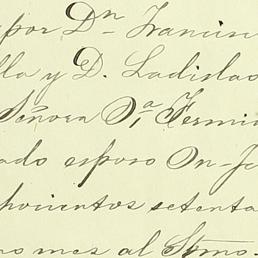 por Dn Francisc
lla y D. Ladislao
Señora Da Fermin
ado esposo Dn Je
hocientos setenta
mo mes al Sfmo.